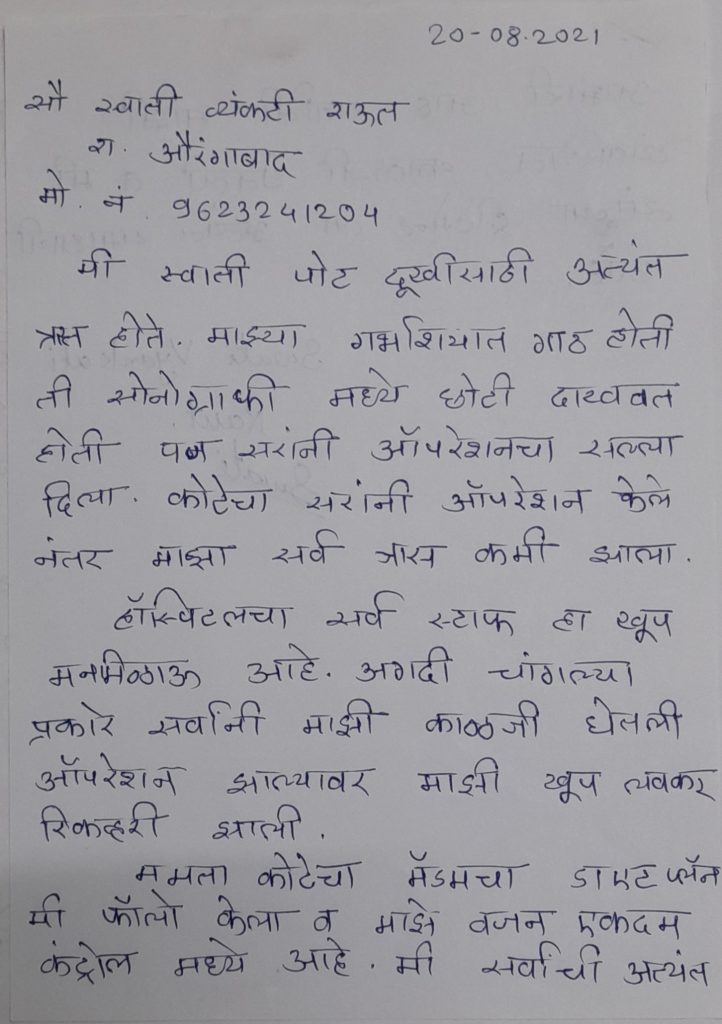 20-08.2021
सौ स्वाती व्यंकटी राऊत
रा. औरंगाबाद
मो. नं. 9623241204
मी स्वाती पोट दूखीसाठी अत्यंत
त्रस्त होते. माझ्या गर्भाशयात गाठ होती
ती सोनोग्राफी मध्ये छोटी दाखवत
होती पण सरांनी ऑपरेशनचा सल्ला
दिला. कोटेचा सरांनी ऑपरेशन केले
नंतर माझा सर्व त्रास कमी झाला.
हॉस्पिटलचा सर्व स्टाफ हा खूप
मनमिळाऊ आहे. अगदी चांगल्या
प्रकारे सर्वांनी माझी काळजी घेतली
ऑपरेशन झाल्यावर माझी खूप लवकर
रिकव्हरी झाली.
ममता कोटेचा मॅडमचा डाएट प्लॅन
मी फॉलो केला व माझे वजन एकदम
कंट्रोल मध्ये आहे. मी सर्वांची अत्यंत